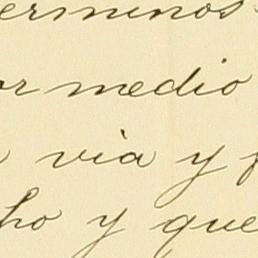 erminos
or medio
via y
ho y que